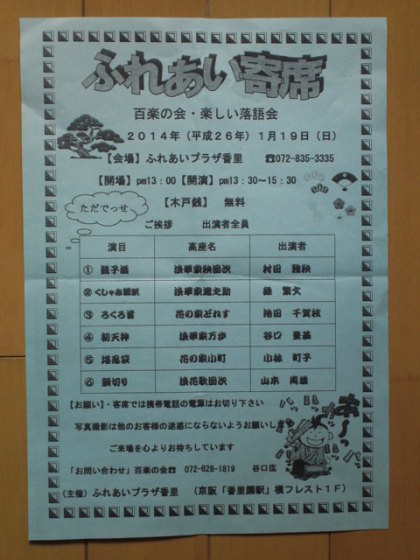 ふれあい寄席
百楽の会・楽しい落語会
2014年（平成26年）1月19日（日）
【会場】ふれあいプラザ香里 ☎072-835-3335
【開場】pm13：00【開演】pm13：30～15：30
【木戸銭】 無料
ただでっせ
ご挨拶 出演者全員
演目 高座名 出演者
① 親子酒 浪華家秧団次 村田
② 浪華家蓮之助 繁文
③ ろくろ首 花の家どれす 池田 千賀枝
④ 初天神 浪華家万歩 谷口
⑤ 堪忍袋 花の家小町 小林 町子
⑥ 胴切り 浪花歌団次 山本
【お願い】・客席では携帯電話の電源はお切り下さい
写真撮影は他のお客様の迷惑にならないようお願いし
ご来場を心よりお待ちしています
「お問い合わせ」百楽の会☎ 072-828-1819 谷口迄
（主催）ふれあいプラザ香里 （京阪「香里園駅」横フレスト1F）
あ～っ